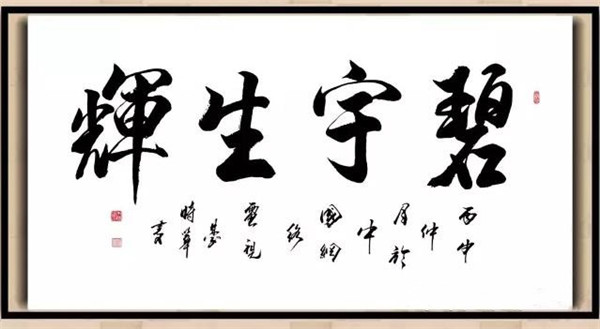 碧宇生輝
丙申
仲
月於
中
國網
絡
電視
臺
時
書